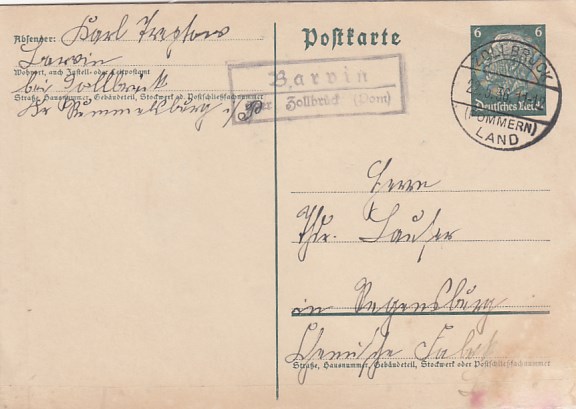 Absender: Karl Treptow
Barvin
Wohnort, auch Zustell- oder Leitpostamt
bei Zollbrück
Straße, Hausnummer, Gebäudeteil, Stockwerk od. Postschließfachnummer
Kr Rummelsburg i/P
Postkarte
Barvin
über Zollbrück (Pom)
6 6
Deutsches Reich
ZOLLBRÜCK
(POMMERN)
LAND
Herrn
Thdr. Lauser
in Regensburg
Chemische Fabrik
Straße, Hausnummer, Gebäudeteil, Stockwerk oder Postschließfachnummer